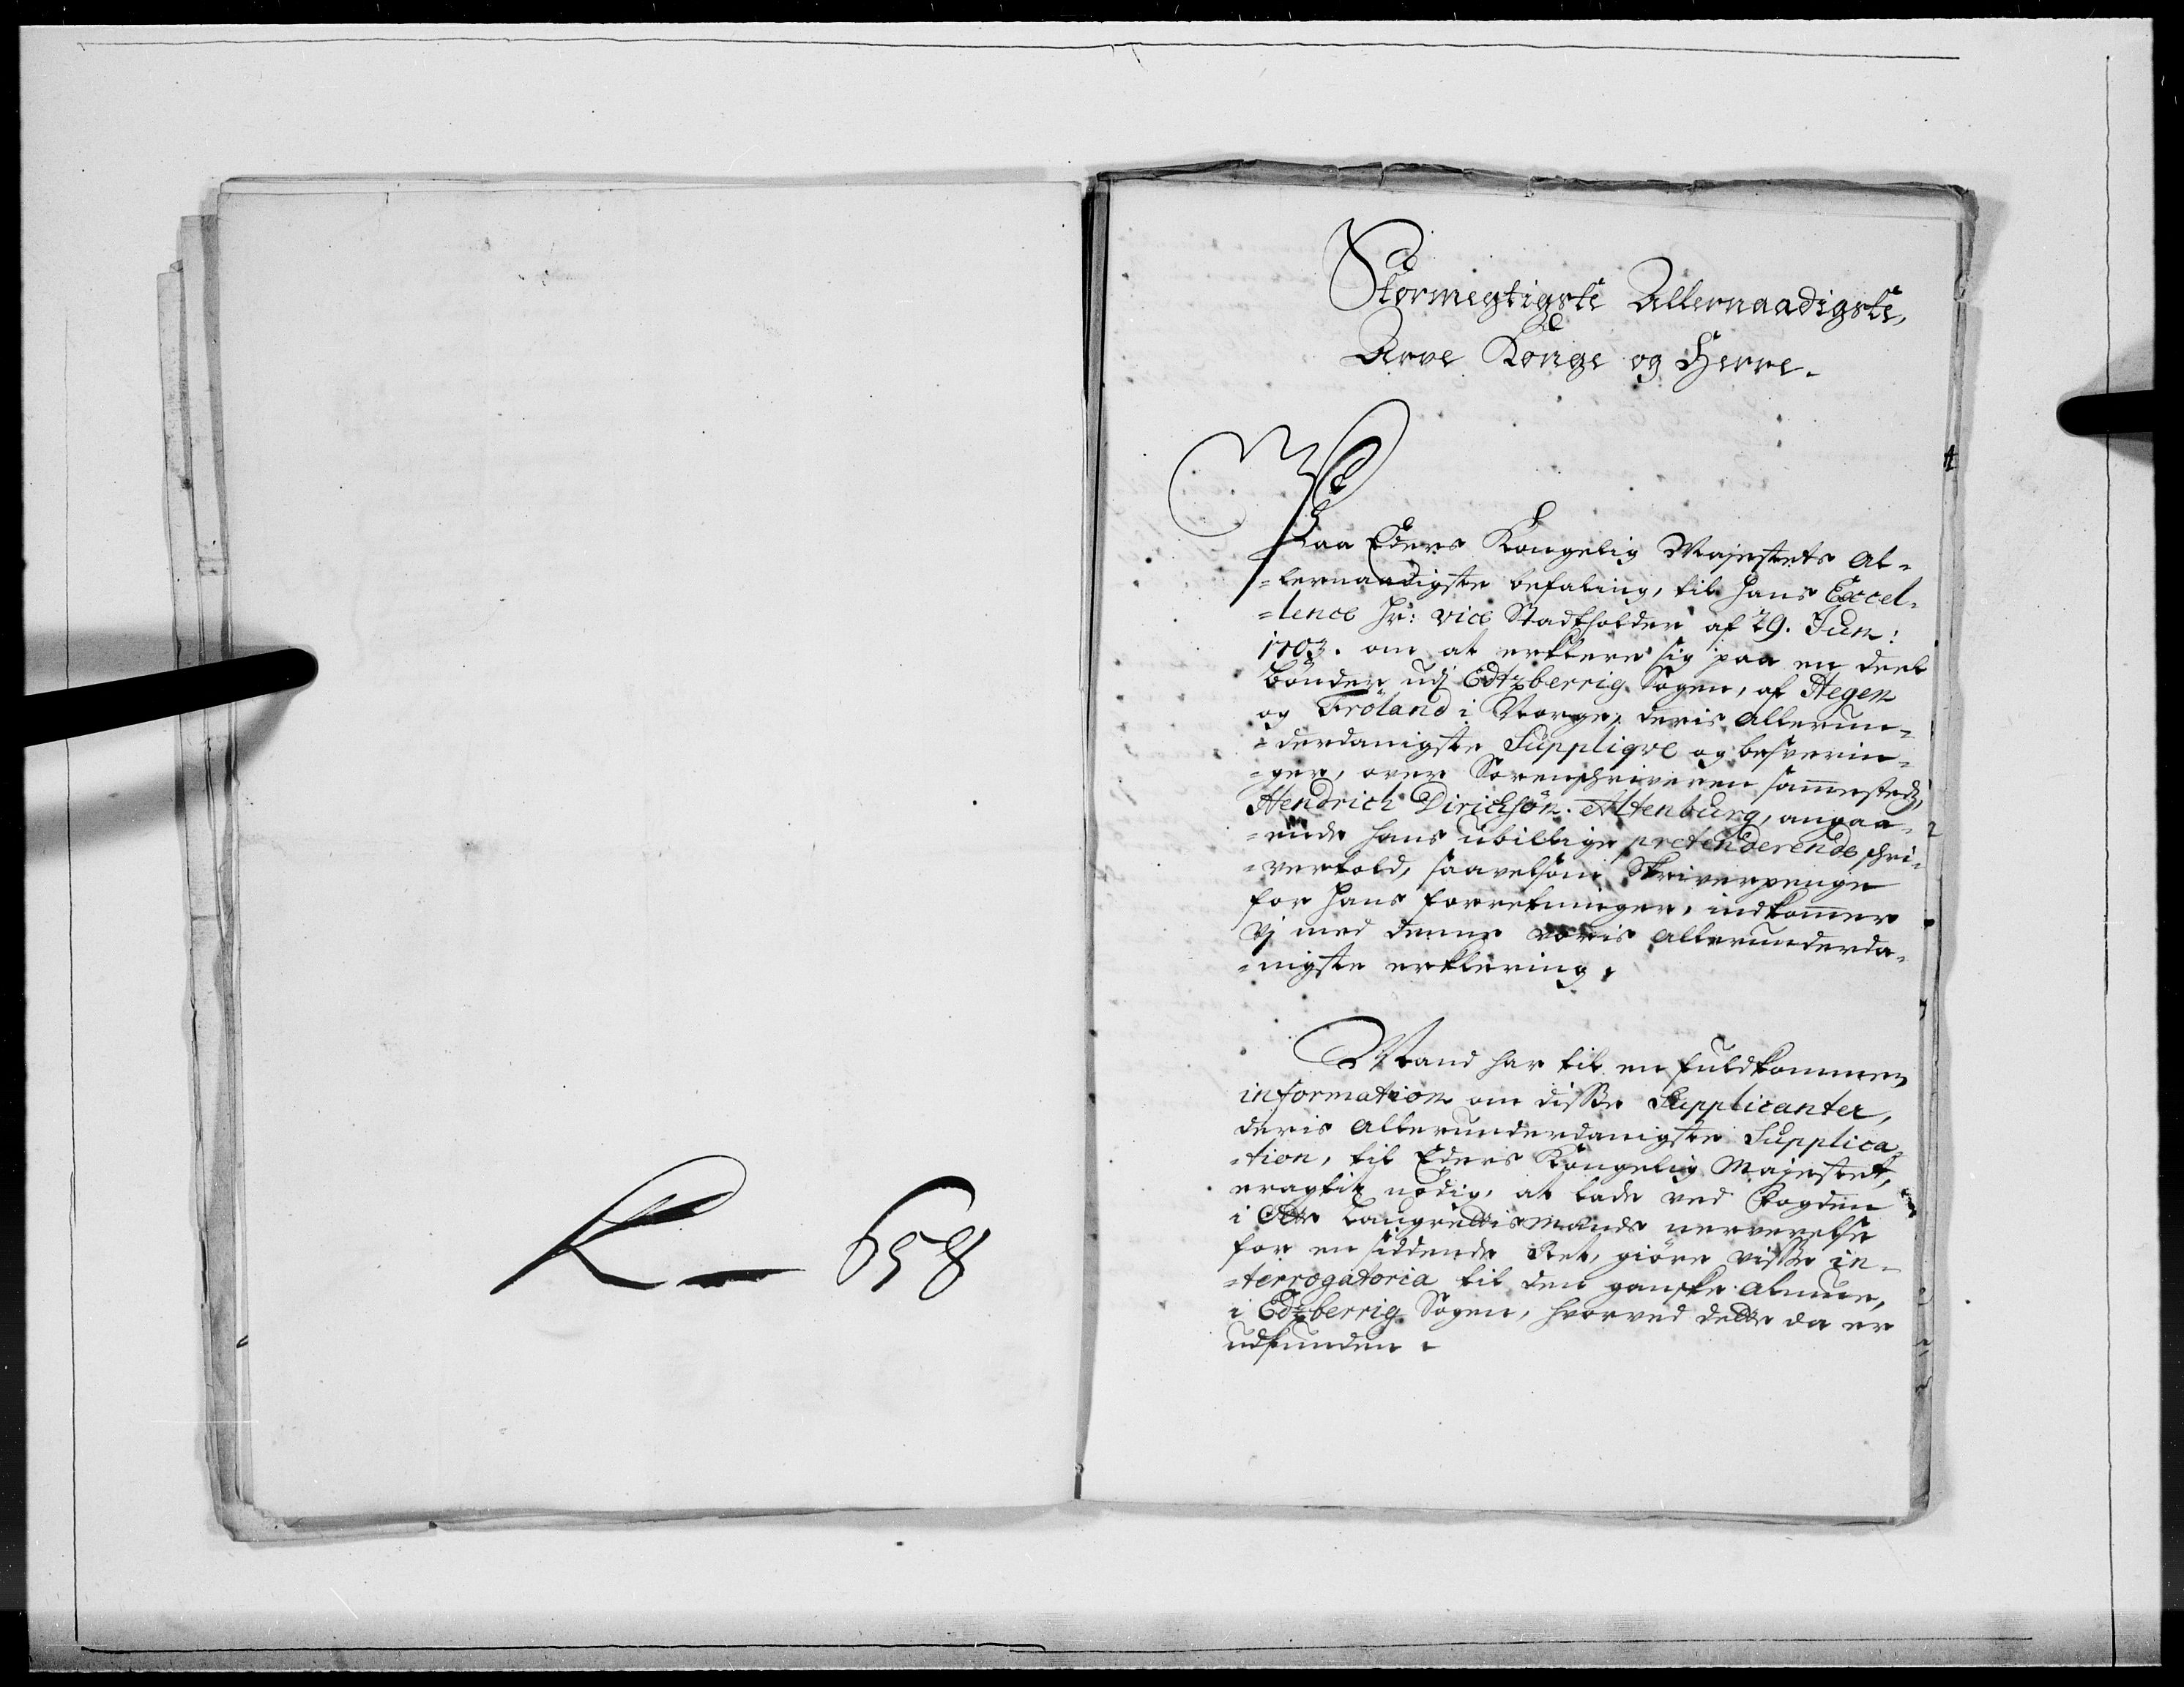 K — 658
Stormegtigste Allernaadigste,
Arve Konge og Herre.
Paa Eders Kongelig Majestets al-
-lernaadigste befaling, til hans Excel-
-lence Hr: vice Stadtholder af 29. Jun:
1703. om at erklere sig paa en deel
bönder udj Edtzberrig Sogen, af Hegen
og Fröland i Norge, deris allerun-
-derdanigste Suppliqve og besverin-
-ger, over Sorenschriveren sammestedz,
Hendrich Dirichsön Altenburg, angaa-
-ende hans ubillige pretenderende schri-
-vertold, saavelsom Skriverpenge
for hans forretninger, indkommer
Vj med denne voris allerunderda-
-nigste erklering.
Mand har til en fuldkommen
information om disse Supplicanter,
deris allerunderdanigste Supplica-
-tion, til Eders Kongelig Majestet,
eragtit nödig, at lade ved fogden
i Otte Laugrettismænds nerverelse
for en siddende Ret, giöre visse in-
-terrogatoria til den gandske almue,
i Edzberrig Sogen, hvorved dette da er
udfunden.